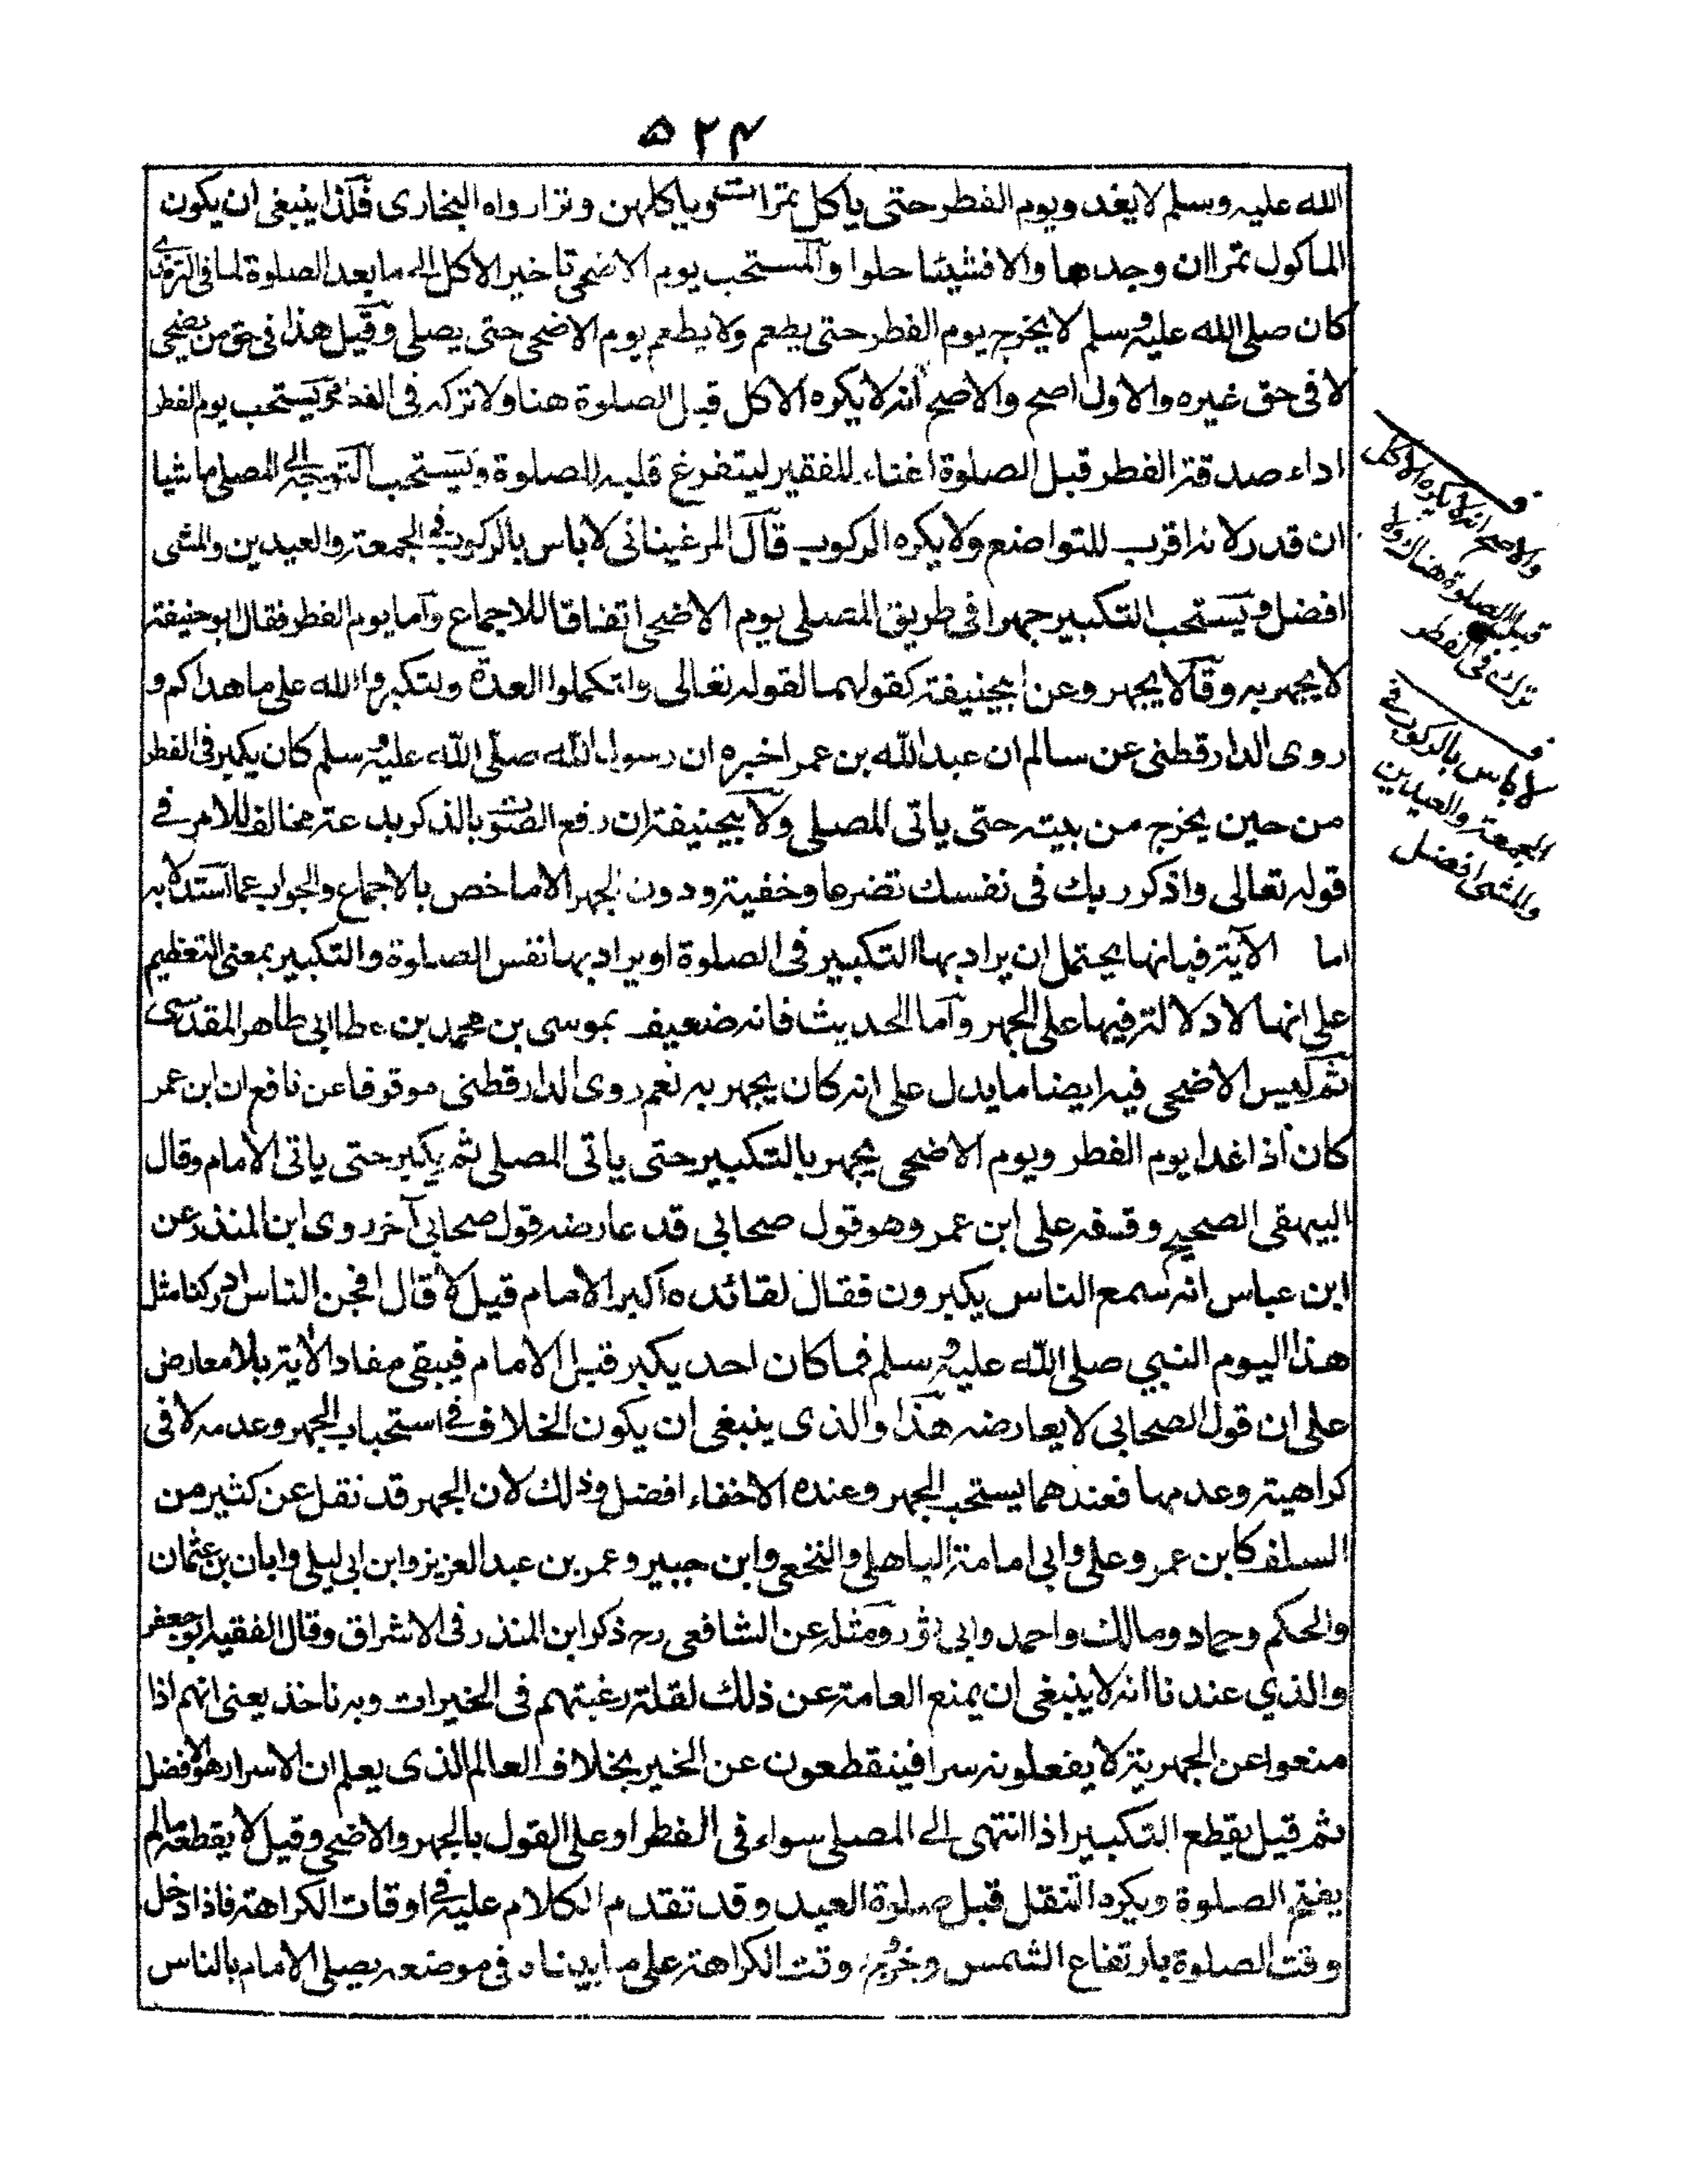 ۵۲۴
الله عليه وسلم لا يغدو يوم الفطر حتى ياكل تمرات وياكلهن وترا رواه البخارى فلذا ينبغى ان يكون
الماكول تمرا ان وجدها والا فشيئا حلوا والمستحب يوم الاضحى تاخير الاكل الى ما بعد الصلوة لما فى الترمذى
كان صلى الله عليه وسلم لا يخرج يوم الفطر حتى يطعم ولا يطعم يوم الاضحى حتى يصلى وقيل هذا فى حق من يضحى
لا فى حق غيره والاول اصح والاصح انه لا يكره الاكل قبل الصلوة هنا ولا تركه فى الفطر يستحب يوم الفطر
اداء صدقة الفطر قبل الصلوة اغناء للفقير ليتفرغ قلبه للصلوة ويستحب التوجه الى المصلى ماشيا
ان قدر لانه اقرب للتواضع ولا يكره الركوب قال المرغينانى لا باس بالركوب فى الجمعة والعيدين والمشى
افضل ويستحب التكبير جهرا فى طريق المصلى يوم الاضحى اتفاقا للاجماع واما يوم الفطر فقال ابو حنيفة
لا يجهر به وقالا يجهر وعن ابيحنيفة كقولهما لقوله تعالى ولتكملوا العدة ولتكبروا الله على ما هداكم و
روى الدارقطنى عن سالم ان عبد الله بن عمر اخبره ان رسول الله صلى الله عليه وسلم كان يكبر فى الفطر
من حين يخرج من بيته حتى ياتى المصلى ولابيحنيفة ان رفع الصوت بالذكر بدعة مخالف للامر فى
قوله تعالى واذكر ربك فى نفسك تضرعا وخفية ودون الجهر الا ما خص بالاجماع والجواب عما استدلا به
اما الآية فبانها يحتمل ان يراد بها التكبير فى الصلوة او يراد بها نفس الصلوة والتكبير بمعنى التعظيم
على انها لا دلالة فيها على الجهر واما الحديث فانه ضعيف بموسى بن محمد بن عطا ابى طاهر المقدسى
ثم ليس الاضحى فيه ايضا ما يدل على انه كان يجهر به نعم روى الدارقطنى موقوفا عن نافع ان ابن عمر
كان اذا غدا يوم الفطر ويوم الاضحى يجهر بالتكبير حتى ياتى المصلى ثم يكبر حتى ياتى الامام وقال
البيهقى الصحيح وقفه على ابن عمر وهو قول صحابى قد عارضه قول صحابى آخر روى ابن المنذر عن
ابن عباس انه سمع الناس يكبرون فقال لقائده اكبر الامام قيل لا قال افجن الناس ادركنا مثل
هذا اليوم النبي صلى الله عليه وسلم فما كان احد يكبر قبل الامام فيبقى مفاد الآية بلا معارض
على ان قول الصحابى لا يعارضه هذا والذى ينبغى ان يكون الخلاف فى استحباب الجهر وعدمه لا فى
كراهيته وعدمها فعندهما يستحب الجهر وعنده الاخفاء افضل وذلك لان الجهر قد نقل عن كثير من
السلف كابن عمر وعلى وابى امامة الباهلى والنخعى وابن جبير وعمر بن عبد العزيز وابن ابى ليلى وابان بن عثمان
والحكم وحماد ومالك واحمد وابى ثور ومثله عن الشافعى رح ذكر ابن المنذر فى الاشراق وقال الفقيه ابو جعفر
والذي عندنا انه لا ينبغى ان يمنع العامة عن ذلك لقلة رغبتهم فى الخيرات وبه ناخذ يعنى انهم اذا
منعوا عن الجهر به لا يفعلونه سرا فينقطعون عن الخير بخلاف العالم الذى يعلم ان الاسرار هو الافضل
ثم قيل يقطع التكبير اذا انتهى الى المصلى سواء فى الفطر او على القول بالجهر والاضحى وقيل لا يقطعه ما لم
يفتح الصلوة ويكره التنفل قبل صلوة العيد وقد تقدم الكلام عليه فى اوقات الكراهة فاذا دخل
وقت الصلوة بارتفاع الشمس وخروج وقت الكراهة على ما بيناه فى موضعه يصلى الامام بالناس
ف
والاصح انه لا يكره الاكل
قبل الصلوة هناك ولا
ترك فى الفطر
ف
لا باس بالركوب فى
الجمعة والعيدين
والمشى افضل